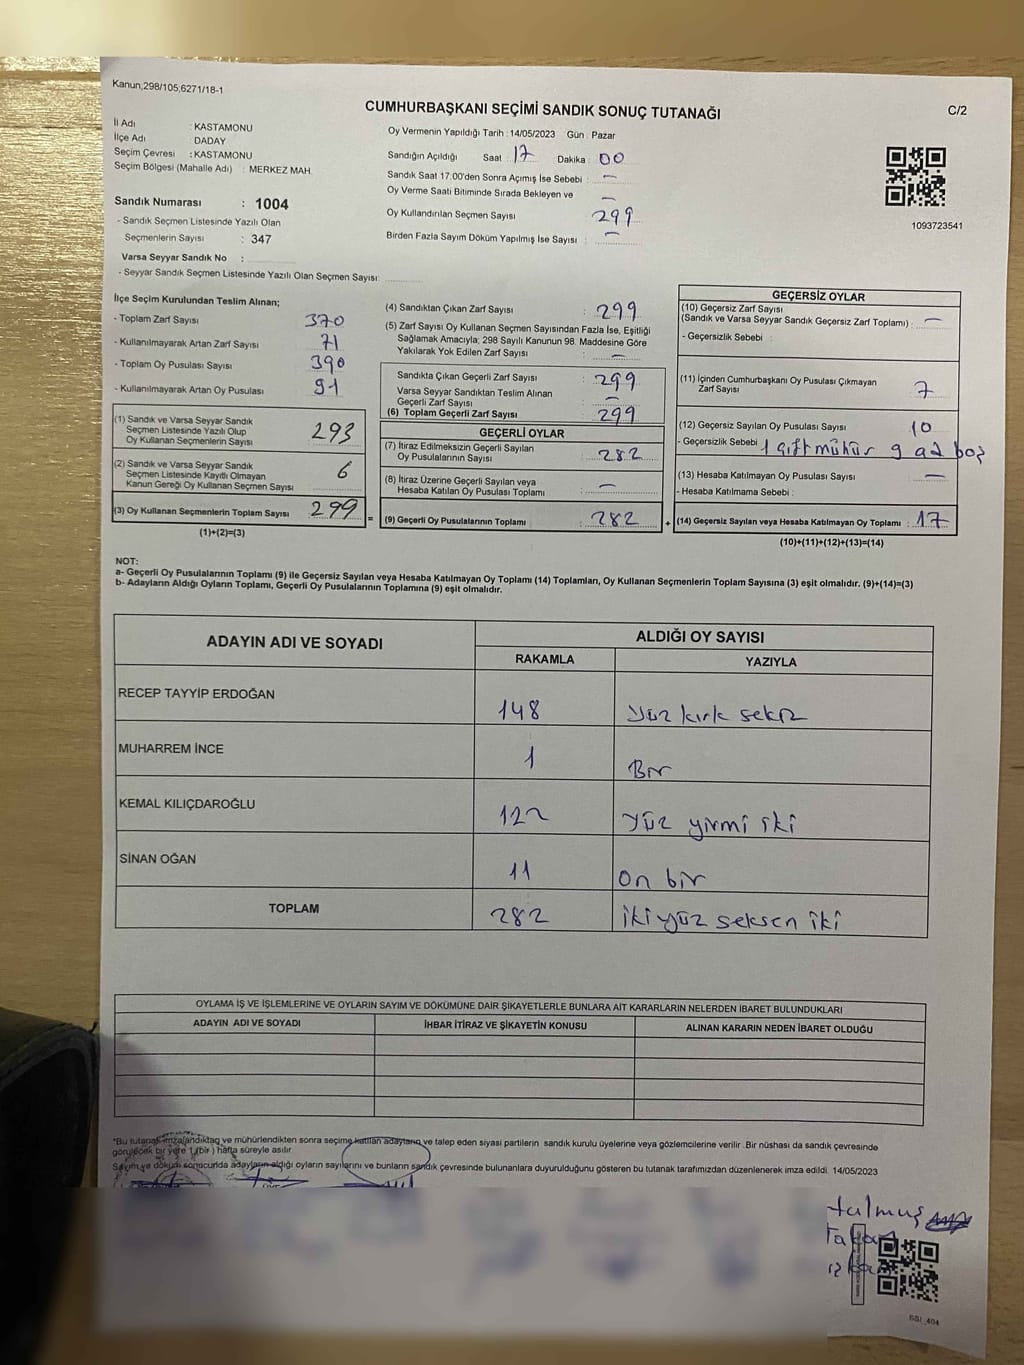 Kanun;298/105;6271/18-1
CUMHURBAŞKANI SEÇİMİ SANDIK SONUÇ TUTANAĞI
C/2
İl Adı : KASTAMONU
İlçe Adı DADAY
Seçim Çevresi : KASTAMONU
Seçim Bölgesi (Mahalle Adı) : MERKEZ MAH.
Sandık Numarası : 1004
- Sandık Seçmen Listesinde Yazılı Olan
Seçmenlerin Sayısı : 347
Varsa Seyyar Sandık No :
- Seyyar Sandık Seçmen Listesinde Yazılı Olan Seçmen Sayısı:
Oy Vermenin Yapıldığı Tarih : 14/05/2023 Gün : Pazar
Sandığın Açıldığı Saat : 17 Dakika : 00
Sandık Saat 17:00'den Sonra Açımış İse Sebebi : —
Oy Verme Saati Bitiminde Sırada Bekleyen ve —
Oy Kullandırılan Seçmen Sayısı 299
Birden Fazla Sayım Döküm Yapılmış İse Sayısı : —
1093723541
İlçe Seçim Kurulundan Teslim Alınan;
- Toplam Zarf Sayısı 370
- Kullanılmayarak Artan Zarf Sayısı : 71
- Toplam Oy Pusulası Sayısı 390
- Kullanılmayarak Artan Oy Pusulası 91
(1) Sandık ve Varsa Seyyar Sandık
Seçmen Listesinde Yazılı Olup
Oy Kullanan Seçmenlerin Sayısı 293
(2) Sandık ve Varsa Seyyar Sandık
Seçmen Listesinde Kayıtlı Olmayan
Kanun Gereği Oy Kullanan Seçmen Sayısı 6
(3) Oy Kullanan Seçmenlerin Toplam Sayısı 299
(1)+(2)=(3)
(4) Sandıktan Çıkan Zarf Sayısı : 299
(5) Zarf Sayısı Oy Kullanan Seçmen Sayısından Fazla İse, Eşitliği
Sağlamak Amacıyla; 298 Sayılı Kanunun 98. Maddesine Göre
Yakılarak Yok Edilen Zarf Sayısı : —
Sandıkta Çıkan Geçerli Zarf Sayısı : 299
Varsa Seyyar Sandıktan Teslim Alınan
Geçerli Zarf Sayısı : —
(6) Toplam Geçerli Zarf Sayısı 299
GEÇERLİ OYLAR
(7) İtiraz Edilmeksizin Geçerli Sayılan
Oy Pusulalarının Sayısı : 282
(8) İtiraz Üzerine Geçerli Sayılan veya
Hesaba Katılan Oy Pusulası Toplamı : —
= (9) Geçerli Oy Pusulalarının Toplamı : 282
GEÇERSİZ OYLAR
(10) Geçersiz Zarf Sayısı
(Sandık ve Varsa Seyyar Sandık Geçersiz Zarf Toplamı) : —
- Geçersizlik Sebebi :
(11) İçinden Cumhurbaşkanı Oy Pusulası Çıkmayan
Zarf Sayısı : 7
(12) Geçersiz Sayılan Oy Pusulası Sayısı 10
- Geçersizlik Sebebi : 1 çift mühür 9 ad boş
(13) Hesaba Katılmayan Oy Pusulası Sayısı : —
- Hesaba Katılmama Sebebi :
+ (14) Geçersiz Sayılan veya Hesaba Katılmayan Oy Toplamı : 17
(10)+(11)+(12)+(13)=(14)
NOT:
a- Geçerli Oy Pusulalarının Toplamı (9) ile Geçersiz Sayılan veya Hesaba Katılmayan Oy Toplamı (14) Toplamları, Oy Kullanan Seçmenlerin Toplam Sayısına (3) eşit olmalıdır. (9)+(14)=(3)
b- Adayların Aldığı Oyların Toplamı, Geçerli Oy Pusulalarının Toplamına (9) eşit olmalıdır.
ADAYIN ADI VE SOYADI
ALDIĞI OY SAYISI
RAKAMLA YAZIYLA
RECEP TAYYİP ERDOĞAN 148 Yüz kırk sekiz
MUHARREM İNCE 1 Bir
KEMAL KILIÇDAROĞLU 122 yüz yirmi iki
SİNAN OĞAN 11 On bir
TOPLAM 282 iki yüz seksen iki
OYLAMA İŞ VE İŞLEMLERİNE VE OYLARIN SAYIM VE DÖKÜMÜNE DAİR ŞİKAYETLERLE BUNLARA AİT KARARLARIN NELERDEN İBARET BULUNDUKLARI
ADAYIN ADI VE SOYADI İHBAR İTİRAZ VE ŞİKAYETİN KONUSU ALINAN KARARIN NEDEN İBARET OLDUĞU
*Bu tutanak imzalandıktan ve mühürlendikten sonra seçime katılan adayların ve talep eden siyasi partilerin sandık kurulu üyelerine veya gözlemcilerine verilir. Bir nüshası da sandık çevresinde
görülecek bir yere 1 (bir) hafta süreyle asılır
Sayım ve döküm sonucunda adayların aldığı oyların sayılarını ve bunların sandık çevresinde bulunanlara duyurulduğunu gösteren bu tutanak tarafımızdan düzenlenerek imza edildi. 14/05/2023